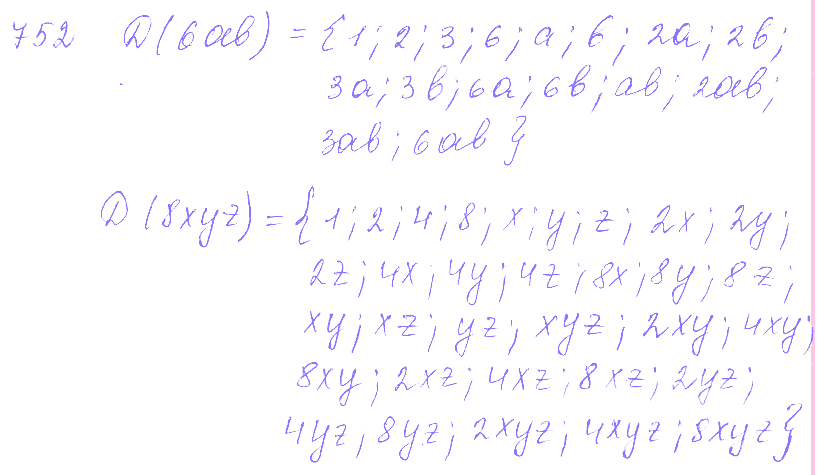 752 D(6ab) = {1; 2; 3; 6; a; b; 2a; 2b;
3a; 3b; 6a; 6b; ab; 2ab;
3ab; 6ab}
D(8xyz) = {1; 2; 4; 8; x; y; z; 2x; 2y;
2z; 4x; 4y; 4z; 8x; 8y; 8z;
xy; xz; yz; xyz; 2xy; 4xy;
8xy; 2xz; 4xz; 8xz; 2yz;
4yz, 8yz; 2xyz; 4xyz; 8xyz}